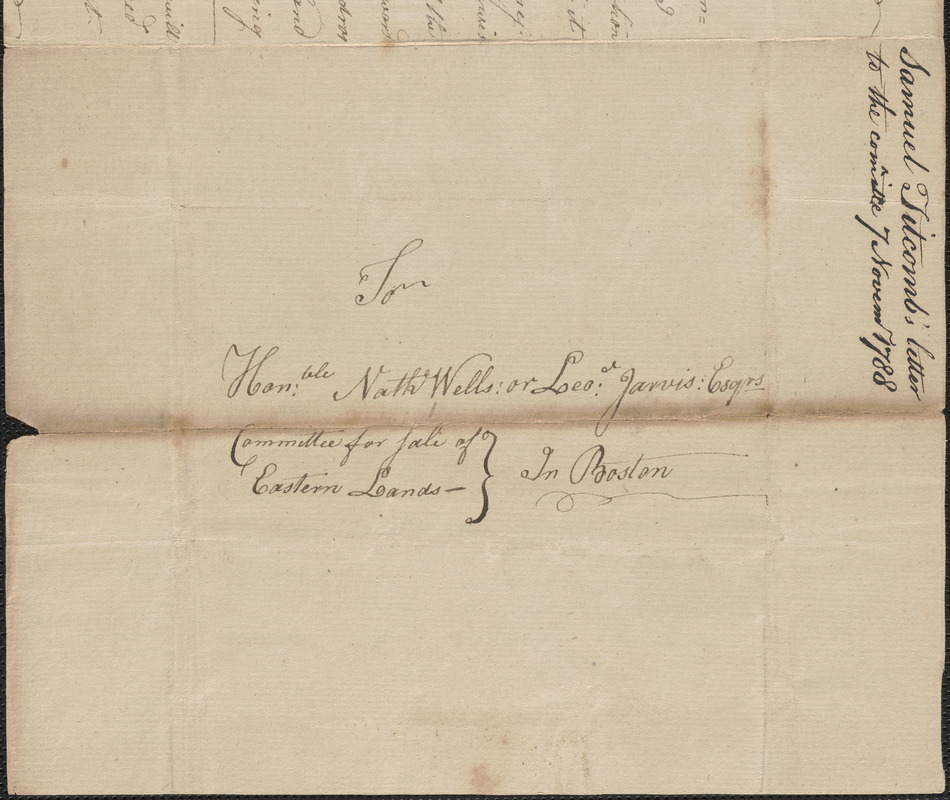 To
Hon:ble Nathl Wells: or Leo:d Jarvis: Esqrs
Committee for sale of
Eastern Lands—
In Boston
Samuel Titcomb's letter
to the comittee 7 Novem 1788